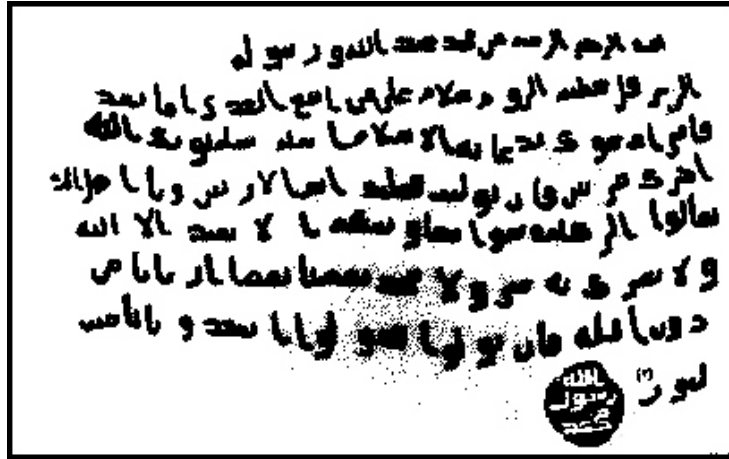 بسم الله الرحمن الرحيم من محمد عبد الله و رسوله
الى هرقل عظيم الروم سلام على من اتبع الهدى اما بعد
فانى ادعوك بدعاية الاسلام اسلم تسلم يوتك الله
اجرك مرتين فان توليت فعليك اثم الاريسين ويا اهل
تعالوا الى كلمة سوا بيننا وبينكم الا نعبد الا الله
ولا نشرك به ولا يتخذ بعضنا بعضا اربابا من
دون الله فان تولوا فقولوا اشهدوا بانا مس
لمون
الله
رسول
محمد